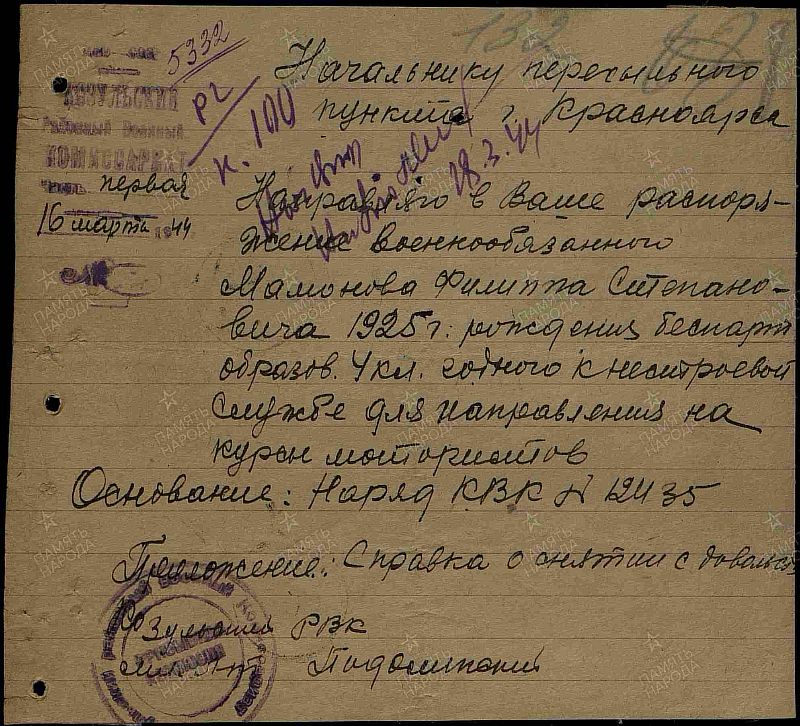 5332
132
Начальнику пересыльного
пункта г. Красноярска
Районный Военный
КОМИССАРИАТ
Часть первая
16 марта 1944
Р2
К. 100
28.3.44
Направляю в Ваше распоря-
жение военнообязанного
Мамонова Филиппа Степано-
вича 1925 г. рождения беспарт
образов. 4 кл. годного к нестроевой
службе для направления на
курсы мотористов
Основание: Наряд КВК № 12435
Приложение: Справка о снятии с довольст
РВК
Подолинский
ПАМЯТЬ
НАРОДА